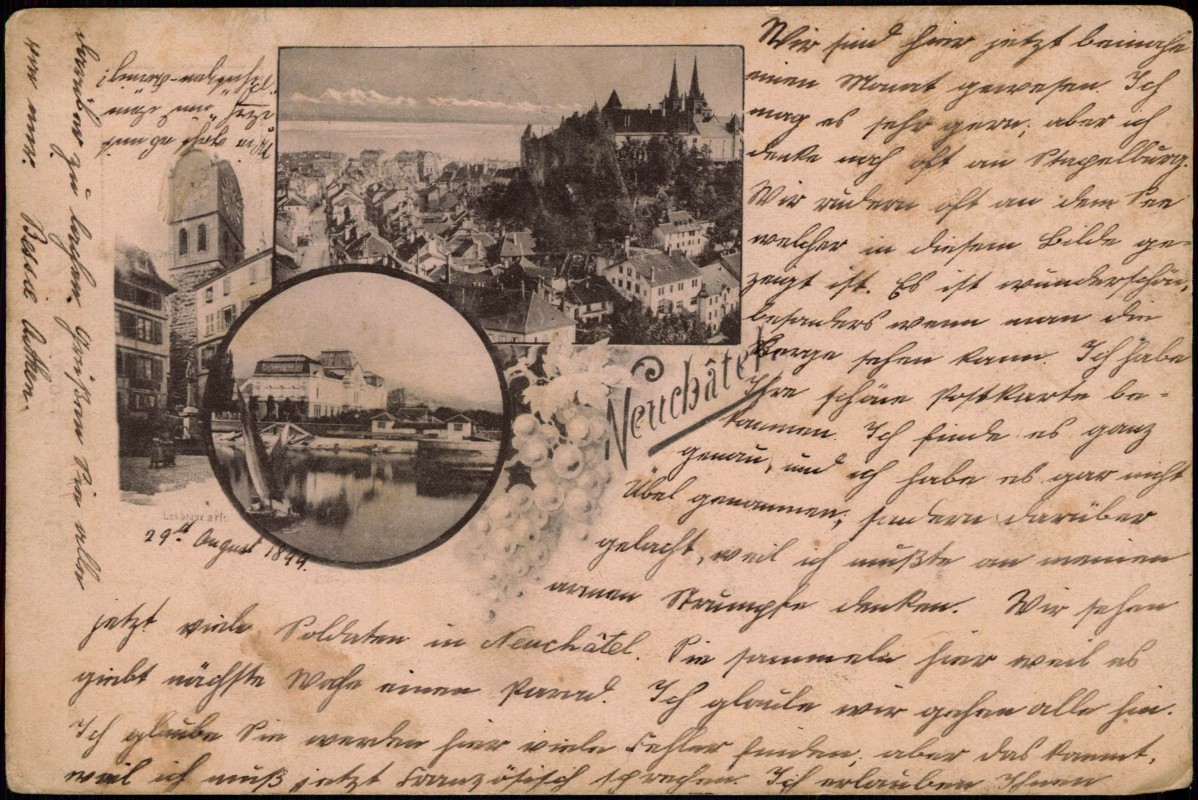 Wir sind hier jetzt beinahe
einen Monat gewesen Ich
mag es sehr gern, aber ich
denke noch oft an Stapelburg.
Wir rudern oft an dem See
welcher in diesem Bilde ge-
zeigt ist. Es ist wunderschön,
besonders wenn man die
Berge sehen kann. Ich habe
Ihre schöne Postkarte be-
kommen. Ich finde es ganz
genau, und ich habe es gar nicht
Übel genommen, sondern darüber
gelacht, weil ich mußte an meinen
armen Strumpfe denken. Wir sehen
jetzt viele Soldaten in Neuchâtel. Sie sammeln hier weil es
giebt nächste Woche einen Parad. Ich glaube wir gehen alle hin.
Ich glaube Sie werden hier viele Fehler finden, aber das kommt,
weil ich muß jetzt Französisch sprechen. Ich erlauben Ihnen
darüber zu lachen. Grüßen Sie alle
von mir. Bessie Aitken.
Neuchâtel
29th August 1899.